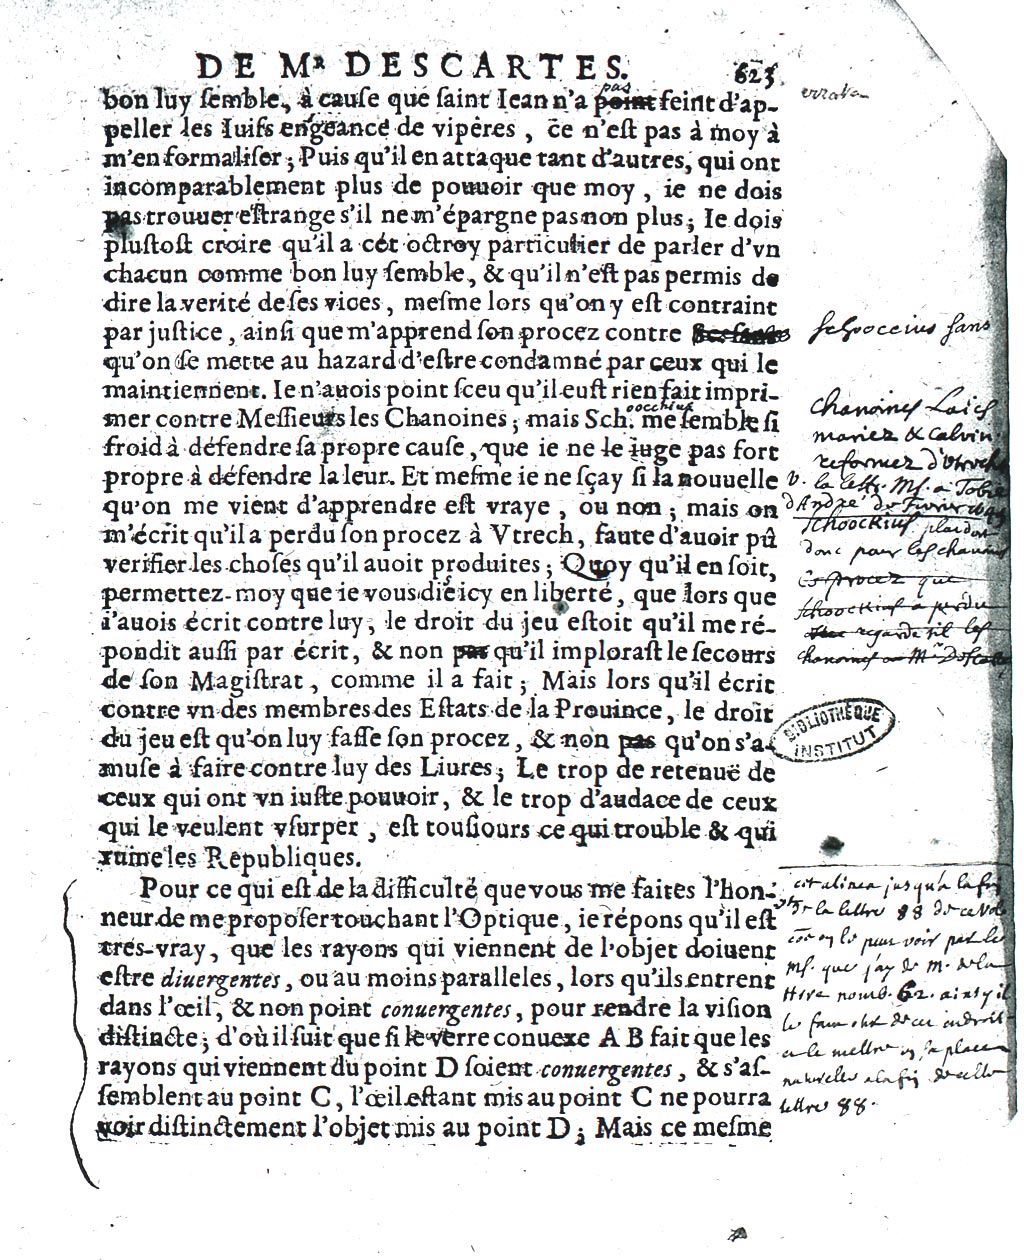 DE Mʀ DESCARTES. 623
errata
pas
bon luy ſemble, à cauſe que ſaint Iean n'a point feint d'ap-
peller les Iuifs engeance de vipères, ce n'eſt pas à moy à
m'en formaliſer; Puis qu'il en attaque tant d'autres, qui ont
incomparablement plus de pouuoir que moy, ie ne dois
pas trouuer eſtrange s'il ne m'épargne pas non plus; Ie dois
pluſtoſt croire qu'il a cét octroy particulier de parler d'vn
chacun comme bon luy ſemble, & qu'il n'eſt pas permis de
dire la verité de ſes vices, meſme lors qu'on y eſt contraint
par juſtice, ainſi que m'apprend ſon procez contre
Schoockius sans
qu'on ſe mette au hazard d'eſtre condamné par ceux qui le
maintiennent. Ie n'auois point ſceu qu'il euſt rien fait impri-
mer contre Meſſieurs les Chanoines; mais Sch. me ſemble ſi
oockius
froid à défendre ſa propre cauſe, que ie ne le iuge pas fort
propre à défendre la leur. Et meſme ie ne ſçay ſi la nouuelle
qu'on me vient d'apprendre eſt vraye, ou non; mais on
m'écrit qu'il a perdu ſon procez à Vtrech, faute d'auoir pû
verifier les choſes qu'il auoit produites; Quoy qu'il en ſoit,
permettez-moy que ie vous die icy en liberté, que lors que
i'auois écrit contre luy, le droit du jeu eſtoit qu'il me ré-
pondit auſſi par écrit, & non pas qu'il imploraſt le ſecours
de ſon Magiſtrat, comme il a fait; Mais lors qu'il écrit
contre vn des membres des Eſtats de la Prouince, le droit
du jeu eſt qu'on luy faſſe ſon procez, & non pas qu'on s'a-
muſe à faire contre luy des Liures; Le trop de retenuë de
ceux qui ont vn iuſte pouuoir, & le trop d'audace de ceux
qui le veulent vſurper, eſt touſiours ce qui trouble & qui
ruine les Republiques.
chanoines Laics
mariez & calvin
reformez d'Utrech
v. la lettr. Ms. a Tobie
d'André de Fevrier
Schoockius plaidoit
donc pour les chanoines
procez que
Schoockius a perdu
regarde il les
chanoines ou Mʳ Descartes
BIBLIOTHÈQUE
INSTITUT
Pour ce qui eſt de la difficulté que vous me faites l'hon-
neur de me propoſer touchant l'Optique, ie répons qu'il eſt
tres-vray, que les rayons qui viennent de l'objet doiuent
eſtre diuergentes, ou au moins paralleles, lors qu'ils entrent
dans l'œil, & non point conuergentes, pour rendre la viſion
diſtincte; d'où il ſuit que ſi le verre conuexe A B fait que les
rayons qui viennent du point D ſoient conuergentes, & s'aſ-
ſemblent au point C, l'œil eſtant mis au point C ne pourra
voir diſtinctement l'objet mis au point D; Mais ce meſme
cet alinea jusqu'a la fin
de la lettre 88 de ce vol.
on le peut voir par le
Ms. que j'ay de M. de la
Hire nomb. 62. ainsy il
le faut oter de cet endroit
et le mettre en sa place
naturelle a la fin de cette
lettre 88.